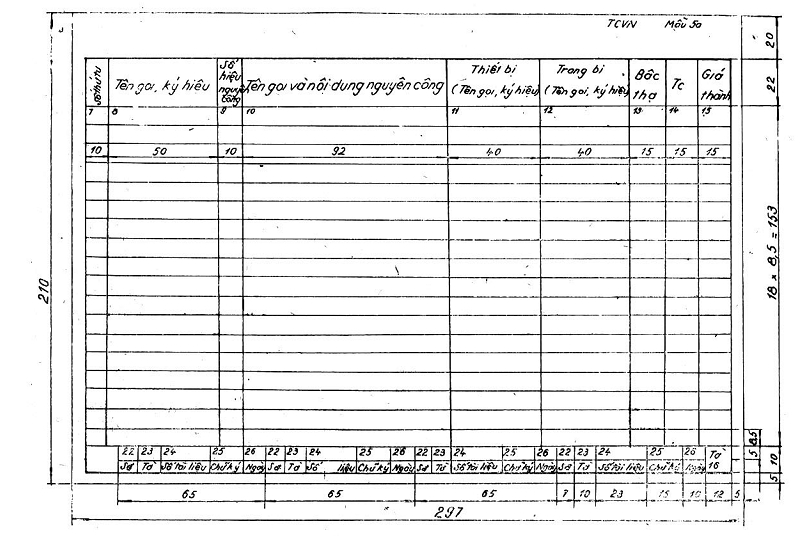 TCVN Mẫu 5a
Số thứ tự
Tên gọi, ký hiệu
Số hiệu nguyên công
Tên gọi và nội dung nguyên công
Thiết bị
(Tên gọi, ký hiệu)
Trang bị
(Tên gọi, ký hiệu)
Bậc thợ
Tc
Giá thành
7 8 9 10 11 12 13 14 15
10 50 10 92 40 40 15 15 15
20
22
18 x 8,5 = 153
8.5
5 10
5
210
22 23 24 25 26 22 23 24 25 26 22 23 24 25 26 22 23 24 25 26 Tờ
Sđ Tờ Số tài liệu Chữ ký Ngày Sđ Tờ Số liệu Chữ ký Ngày Sđ Tờ Số tài liệu Chữ ký Ngày Sđ Tờ Số tài liệu Chữ ký Ngày 16
65 65 65 7 10 23 15 10 12 5
297